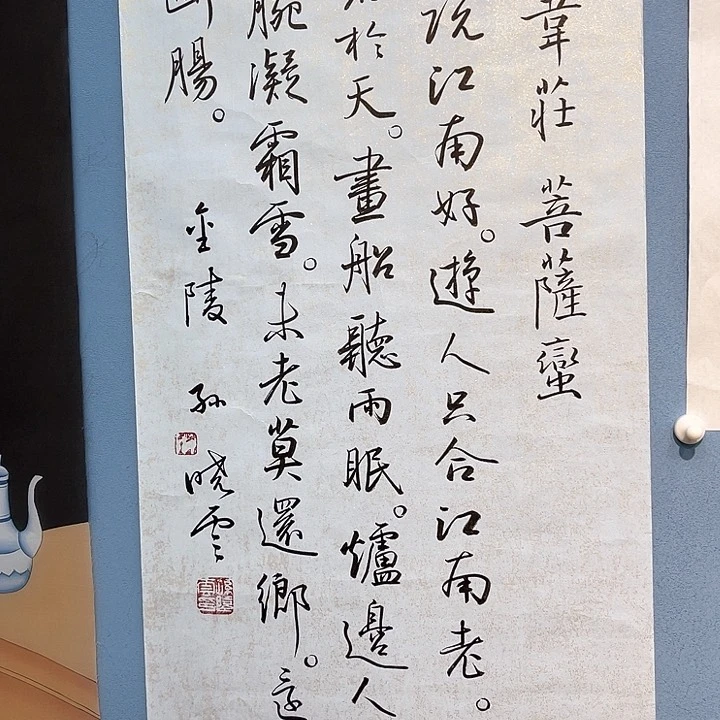 韋莊 菩薩蠻
説江南好。遊人只合江南老。
於天。畫船聽雨眠。爐邊人
腕凝霜雪。未老莫還鄉。還
斷腸。 金陵 孫曉雲